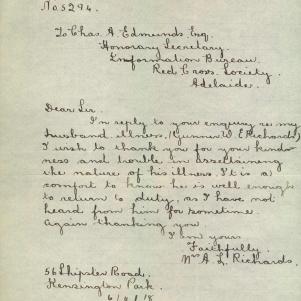 No. 5294.
To Chas. A. Edmunds Esq.
Honorary Secretary.
Information Bureau.
Red Cross Society.
Adelaide.
Dear Sir.
In reply to your enquiry re my
husband illness. (Gunner W E Richards)
I wish to thank you for your kind-
ness and trouble in assertaining
the nature of his illness. It is a
comfort to know he is well enough
to return to duty. as I have not
heard from him for sometime.
Again thanking you
I am yours
Faithfully.
Mrs A. L. Richards.
56 Shipster Road.
Kensington Park.